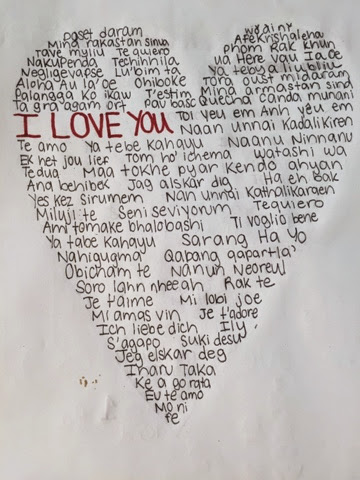 Doset daram
Mina rakastan sinua
Tave myliu Te quiero
Nakupenda Techihhila
Negligevapse Lu'bim ta
Aloha Au Ia'oe Ohiboke
Palangga Ko ikaw I love
Ta gra agam ort pav basc
Afekrishalehá
phom Rak khun
ua Here vau Ia Oe
Ya tebya liubliu
Tora dust midaram
Mina armastan sind
Quecha canda munani
I LOVE YOU Toi yeu em Anh yeu em
Naan unnai Kadalikiren
Te amo Ya tebe Kahayu Naanu Ninnanu
Ek het jou lief Tom ho' ichema watashi wa
Tedua Maa tokhe pyar kendo ahyan
Ana behibek Jag alskar dig Ha eh Bak
Yes kez sirumem Nan unnai Kathalikaraen
Miluji te Seni seviyorum Te quiero
Ami tomake bhalobashi Ti voglio bene
Ya tabe Kahayu Sarang Ha Yo
Nahigugma' Qabang qaparTla'
Obicham te Nanun Neoreul
Soro lahn nheeah Rak te
Je t'aime Mi lobi joe
M'amas vin Je t'adore
Ich liebe dich Ily
S'agapo Suki desu
Jeg elskar deg
Iharu Taka
Ke a go rata
Eu te amo
Mo ni
fe